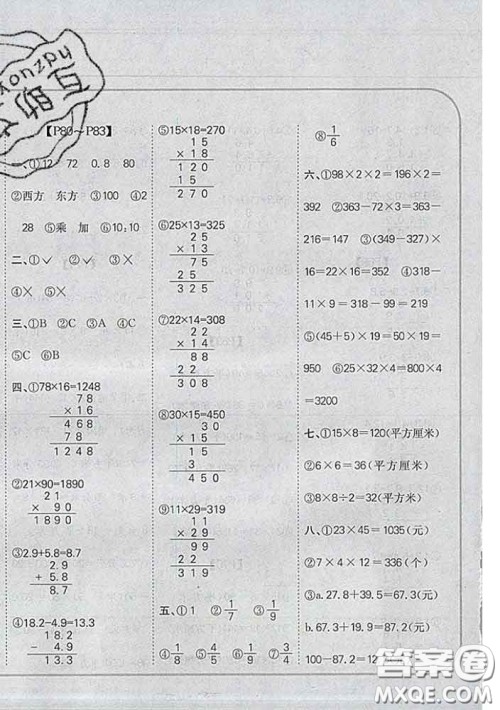 onzpy
互助
【P80～P83】
一、①12 72 0.8 80
②西方 东方 ③100 ④2
28 ⑤乘 加 ⑥10:10
二、①✓ ②✓ ③×
④× ⑤×
三、①B ②D ③B ④A
⑤C ⑥B
四、①78×16=1248
78
× 16
468
78
1248
②21×90=1890
21
× 90
1890
③2.9+5.8=8.7
2.9
+ 5.8
8.7
④18.2-4.9=13.3
18.2
- 4.9
13.3
⑤15×18=270
15
× 18
120
15
270
⑥25×13=325
25
× 13
75
25
325
⑦22×14=308
22
× 14
88
22
308
⑧30×15=450
30
× 15
15
3
450
⑨11×29=319
11
× 29
99
22
319
五、①1 ②1/7 ③1/9
④1/8 ⑤4/5 ⑥1/9 ⑦3/4
⑧1/6
六、①98×2×2=196×2=
392 ②363-72×3=363-
216=147 ③(349-327)×
16=22×16=352 ④318-
11×9=318-99=219
⑤(45+5)×19=50×19=
950 ⑥25×32×4=800×4
=3200
七、①15×8=120(平方厘米)
②6×6=36(平方厘米)
③8×8÷2=32(平方米)
八、①23×45=1035(元)
②7×4×12=336(个)
③a.27.8+39.5=67.3(元)
b.67.3+19.9=87.2(元)
100-87.2=12
答案圈
MXQE.COM